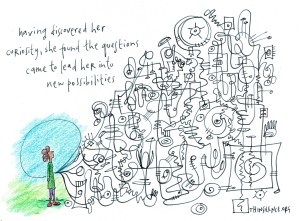 having discovered her
curiosity, she found the questions
came to lead her into
new possibilities